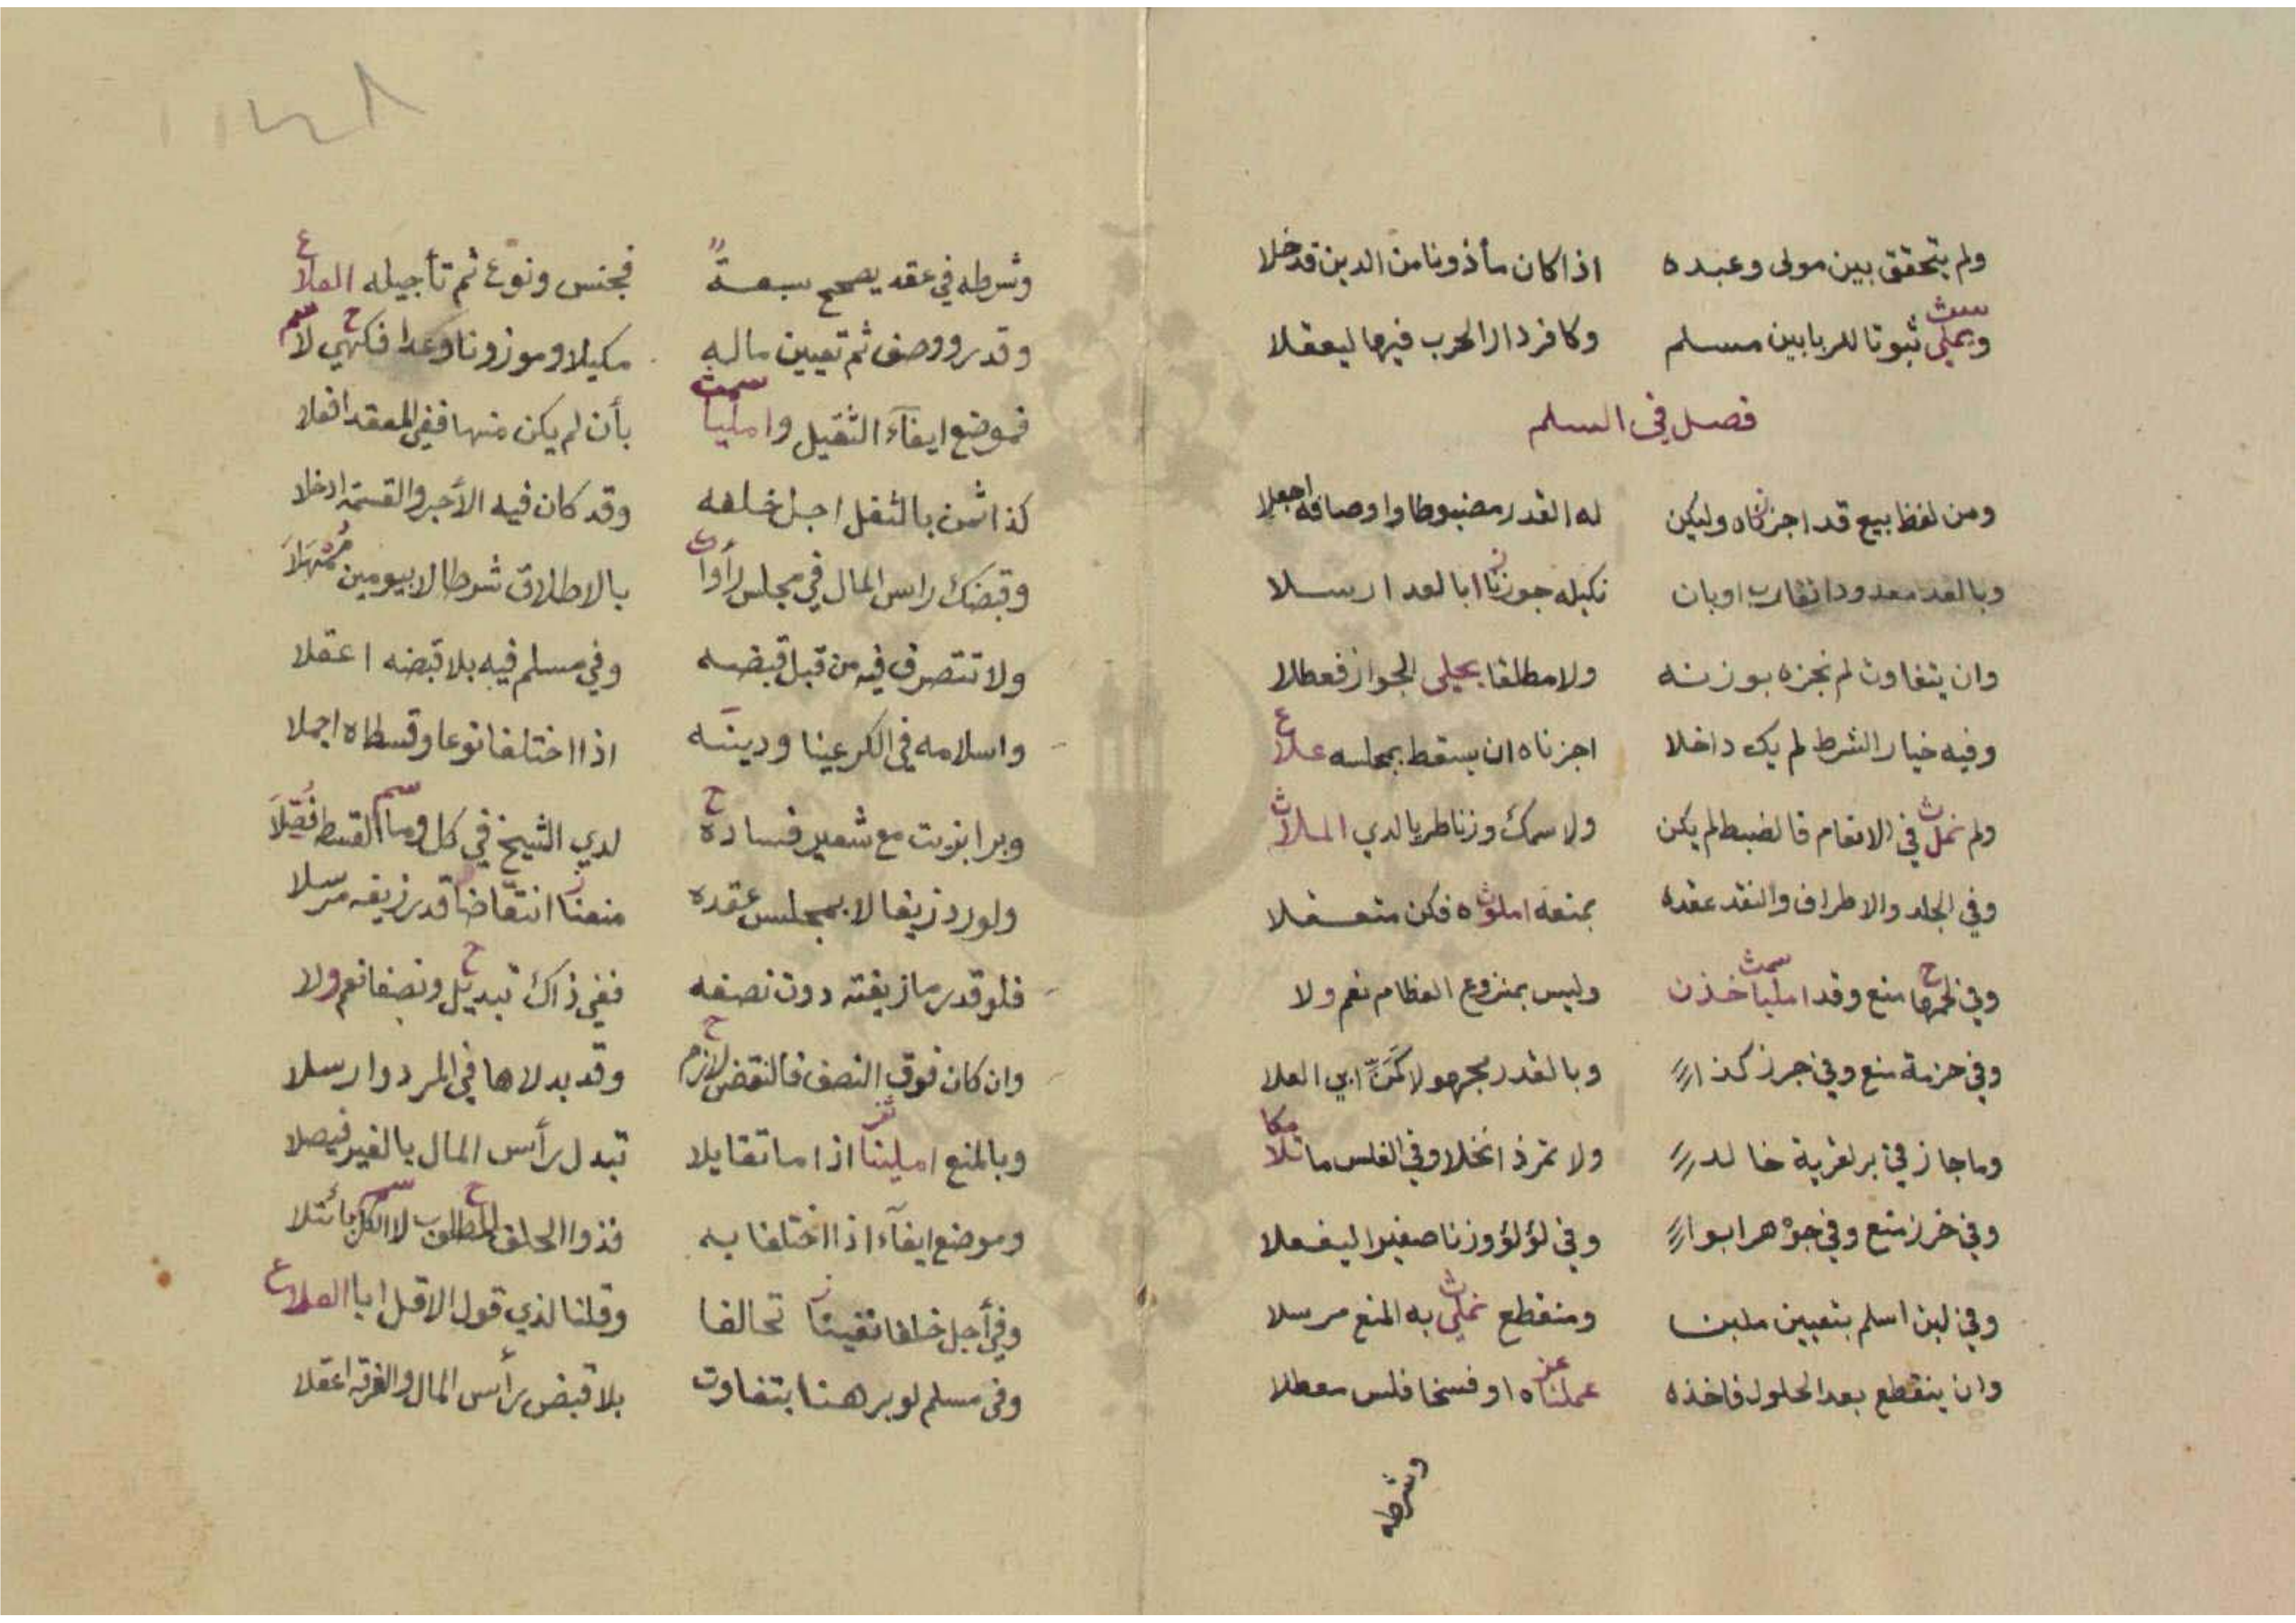 ولم يتحقق بين مولى وعبده اذا كان مأذونا من الدين قد خلا
ويملى ثبوتا للربا بين مسلم وكافر دار الحرب فيها ليعقلا
فصل في السلم
ومن لفظ بيع قد اجزناه وليكن له القدر مضبوطا واوصافه اجعلا
وبالعد معدودا تقارب اوبان نكيله جوزنا ابالعد ارسلا
وان يتفاوت لم نجزه بوزنه ولا مطلقا يحيلى الجواز فعطلا
وفيه خيار الشرط لم يك داخلا اجزناه ان يسقط بمجلسه علا
ولم نمل في الانعام فالضبط لم يكن ولا سمك وزنا طريا لدي الملا
وفي الجلد والاطراف والنقد عقده بمنعه املوه فكن متعقلا
وفي لحمها منع وقد امليا خذن وليس بمنزوع العظام نعم ولا
وفي حزمة منع وفي جرز كذا وبالقدر مجهولا كمن ابي العلا
وما جاز في بر لقرية خالد ولا تمر ذا نخلا وفي الفلس ما تلا
وفي خرز منع وفي جوهر ابوا وفي لؤلؤ وزنا صغيرا ليفعلا
وفي لبن اسلم بتعيين ملبن ومنقطع نملي به المنع مرسلا
وان ينقطع بعد الحلول فاخذه عملناه او فسخا فلس معطلا
وشرطه
وشرطه في عقد يصحح سبعة فجنس ونوع ثم تأجيله العلا
وقدر ووصف ثم تعيين ماله مكيلا وموزونا وعدا فكهي لا
فموضع ايفآء الثقيل وامليا بأن لم يكن منها ففي المعقد افعلا
كذا ثمن بالثقل اجل خلفه وقد كان فيه الأجر والقسمة ادخلا
وقبضك راس المال في مجلس رأوا بالاطلاق شرطا لا بيومين مُمْهَلَا
ولا تتصرف فيه من قبل قبضه وفي مسلم فيه بلا قبضه اعقلا
واسلامه في الكر عينا ودينه اذا اختلفا نوعا وقسطاه اجملا
وبرا بزيت مع شعير فساده لدي الشيخ في كل وما القسط فُصِّلَا
ولو رد زيفا لا بمجلس عقده منعنا انتقاضا قدر زيفه مرسلا
فلو قدر ما زيفته دون نصفه ففي ذاك تبديل ونصفا نعم ولا
وان كان فوق النصف فالنقض لازم وقد بدلاها في المرد وارسلا
وبالمنع املينا اذا ما تقايلا تبدل رأس المال بالغير فيصلا
وموضع ايفآء اذا اختلفا به فذوا الحلف المطلوب لا الكل يا تلا
وفي أجل خلفا نفينا تحالفا وقلنا لذي قول الاقل ابا العلا
وفي مسلم لو برهنا بتفاوت بلا قبض رأس المال والفرقة اعقلا